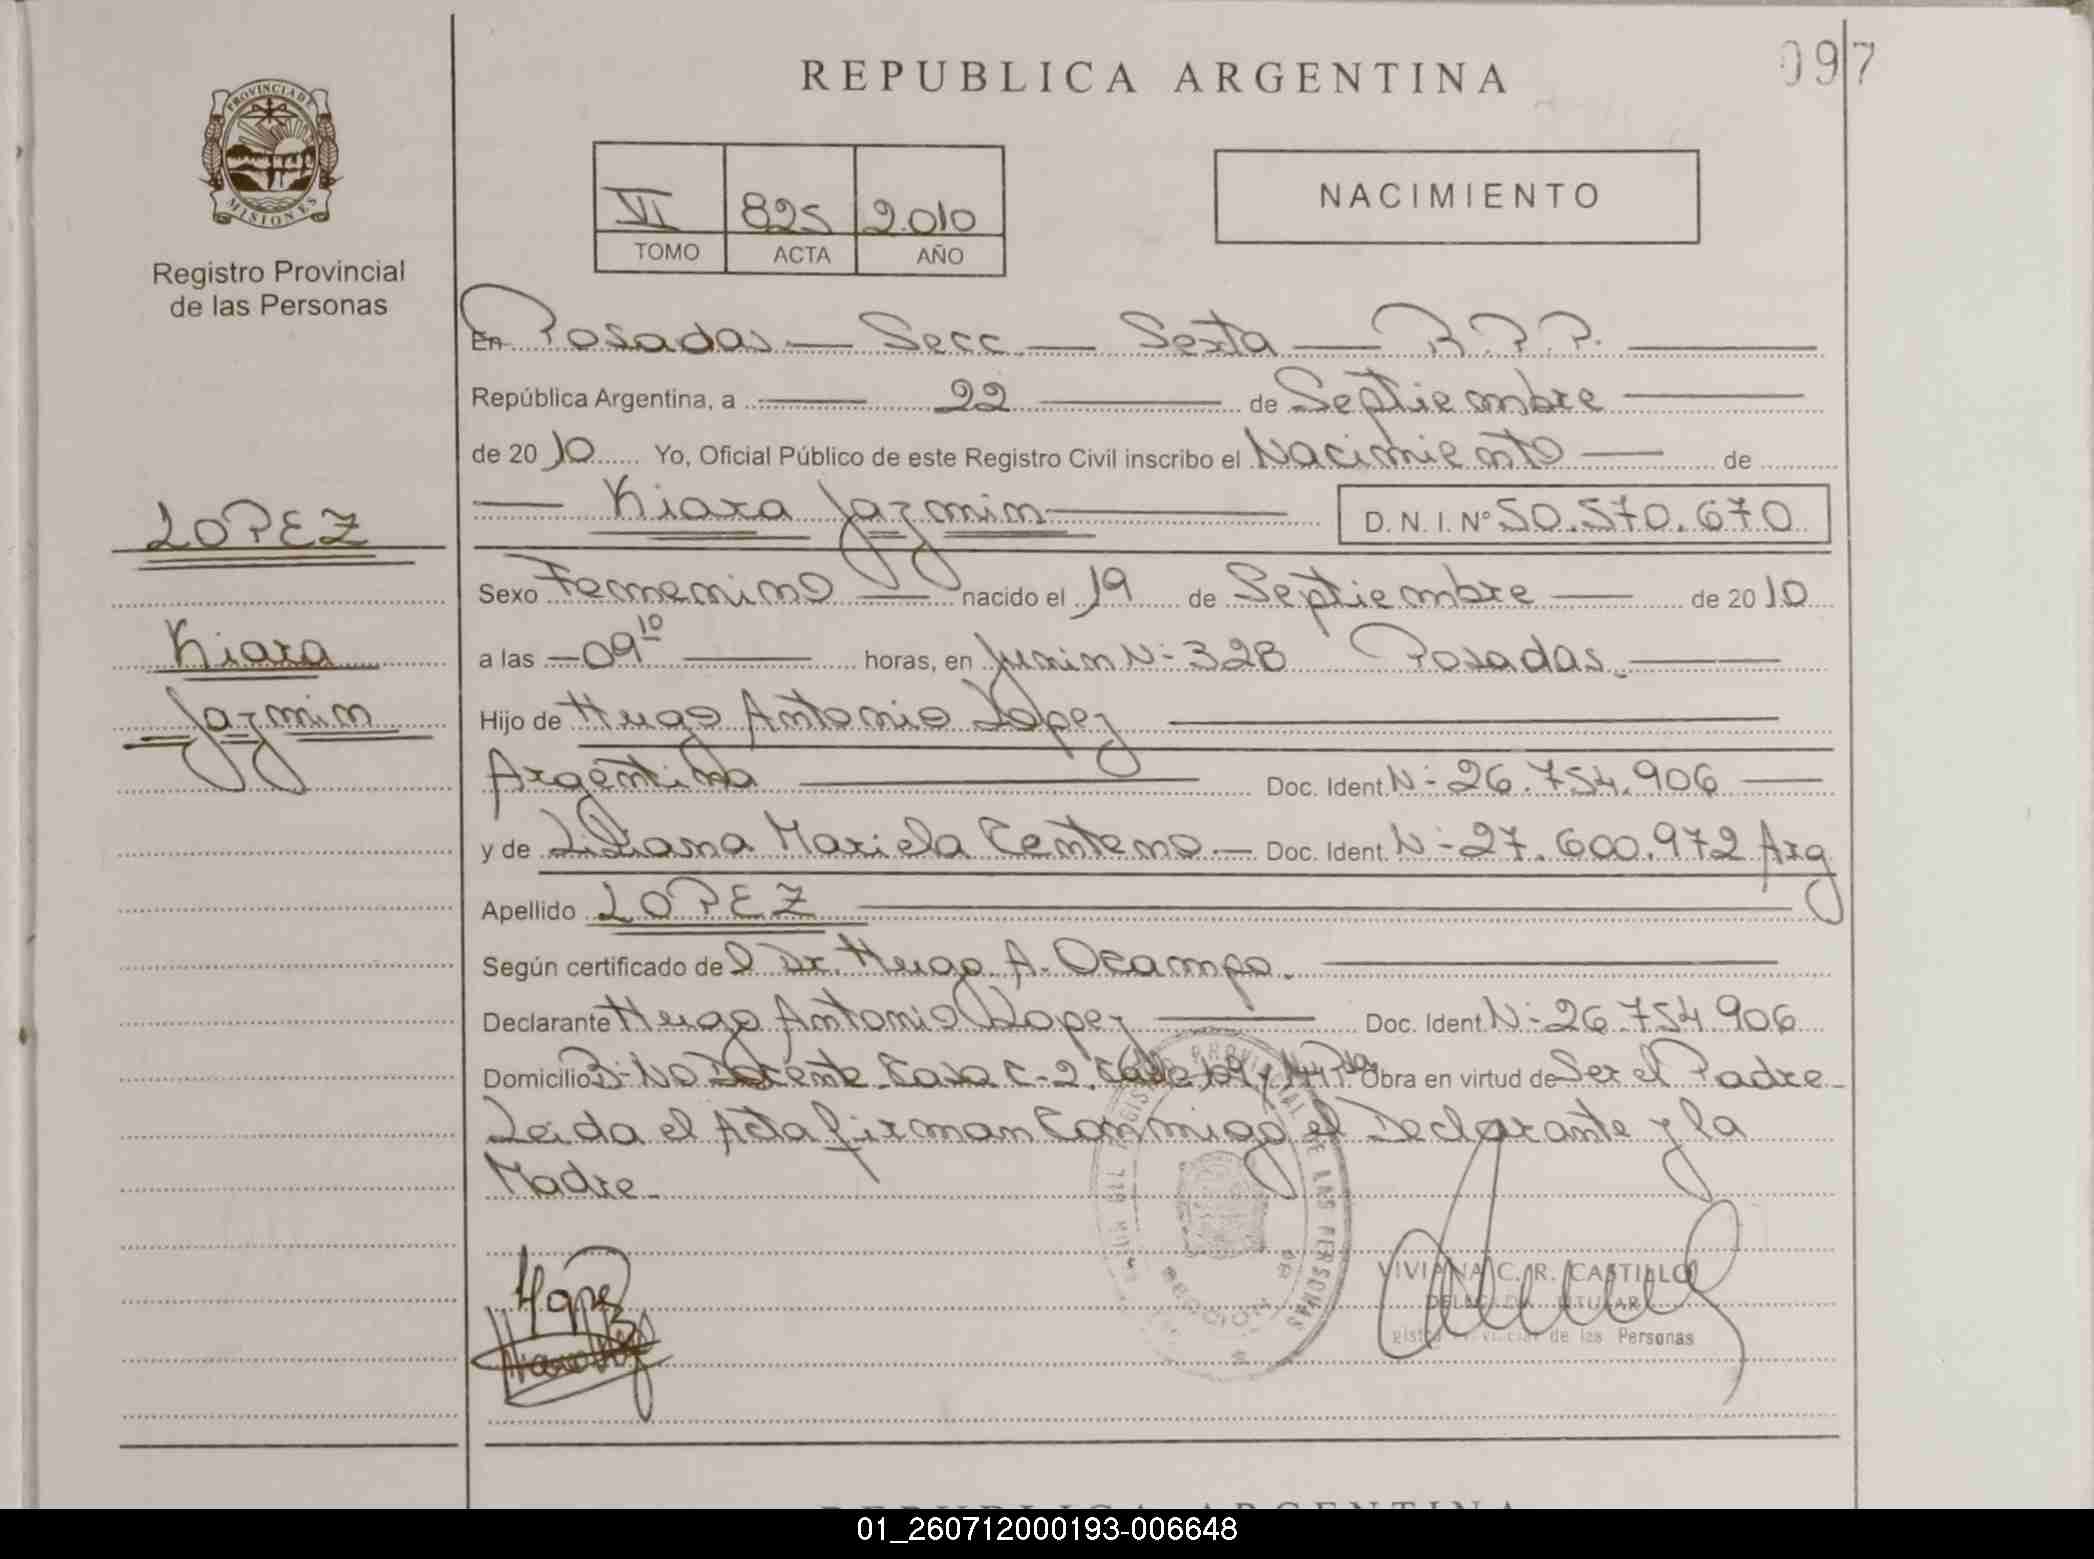 REPUBLICA ARGENTINA
097
PROVINCIA DE
MISIONES
Registro Provincial
de las Personas
VI 825 2.010
TOMO ACTA AÑO
NACIMIENTO
En Posadas — Secc — Sexta — R.P.P. —
República Argentina, a — 22 — de Septiembre —
de 2010 Yo, Oficial Público de este Registro Civil inscribo el Nacimiento — de
— Kiara Jazmin — D. N. I. Nº 50.570.670
LOPEZ
Kiara
Jazmin
Sexo Femenino — nacido el 19 de Septiembre — de 2010
a las — 09 10 — horas, en Junin Nº 328 Posadas. —
Hijo de Hugo Antonio Lopez —
Argentina — Doc. Ident. Nº 26.754.906 —
y de Liliana Mariela Centeno — Doc. Ident. Nº 27.600.972 Arg
Apellido LOPEZ —
Según certificado del Dr. Hugo A. Ocampo. —
Declarante Hugo Antonio Lopez — Doc. Ident. Nº 26.754.906
Domicilio Bº Docente Casa C-2. Calle Obra en virtud de Ser el Padre -
Leida el Acta firman Conmigo el Declarante y la
Madre -
REGISTRO PROVINCIAL DE LAS PERSONAS
SECCION
Lopez
VIVIANA C. R. CASTILLO
DELEGADA TITULAR
de las Personas
REPUBLICA ARGENTINA
01_260712000193-006648